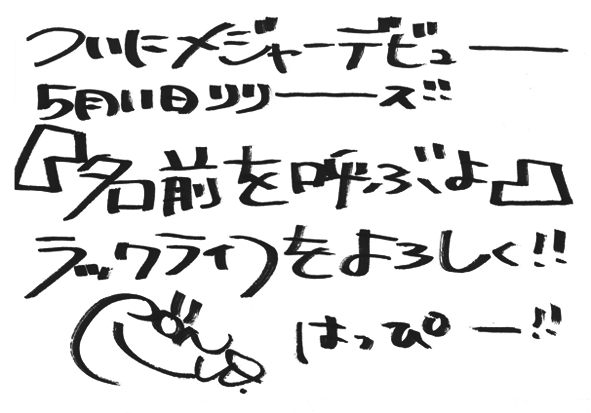 ついにメジャーデビュー
5月11日リリーーズ!!
『名前を呼ぶよ』
ラックライフをよろしく!!
はっぴー!!